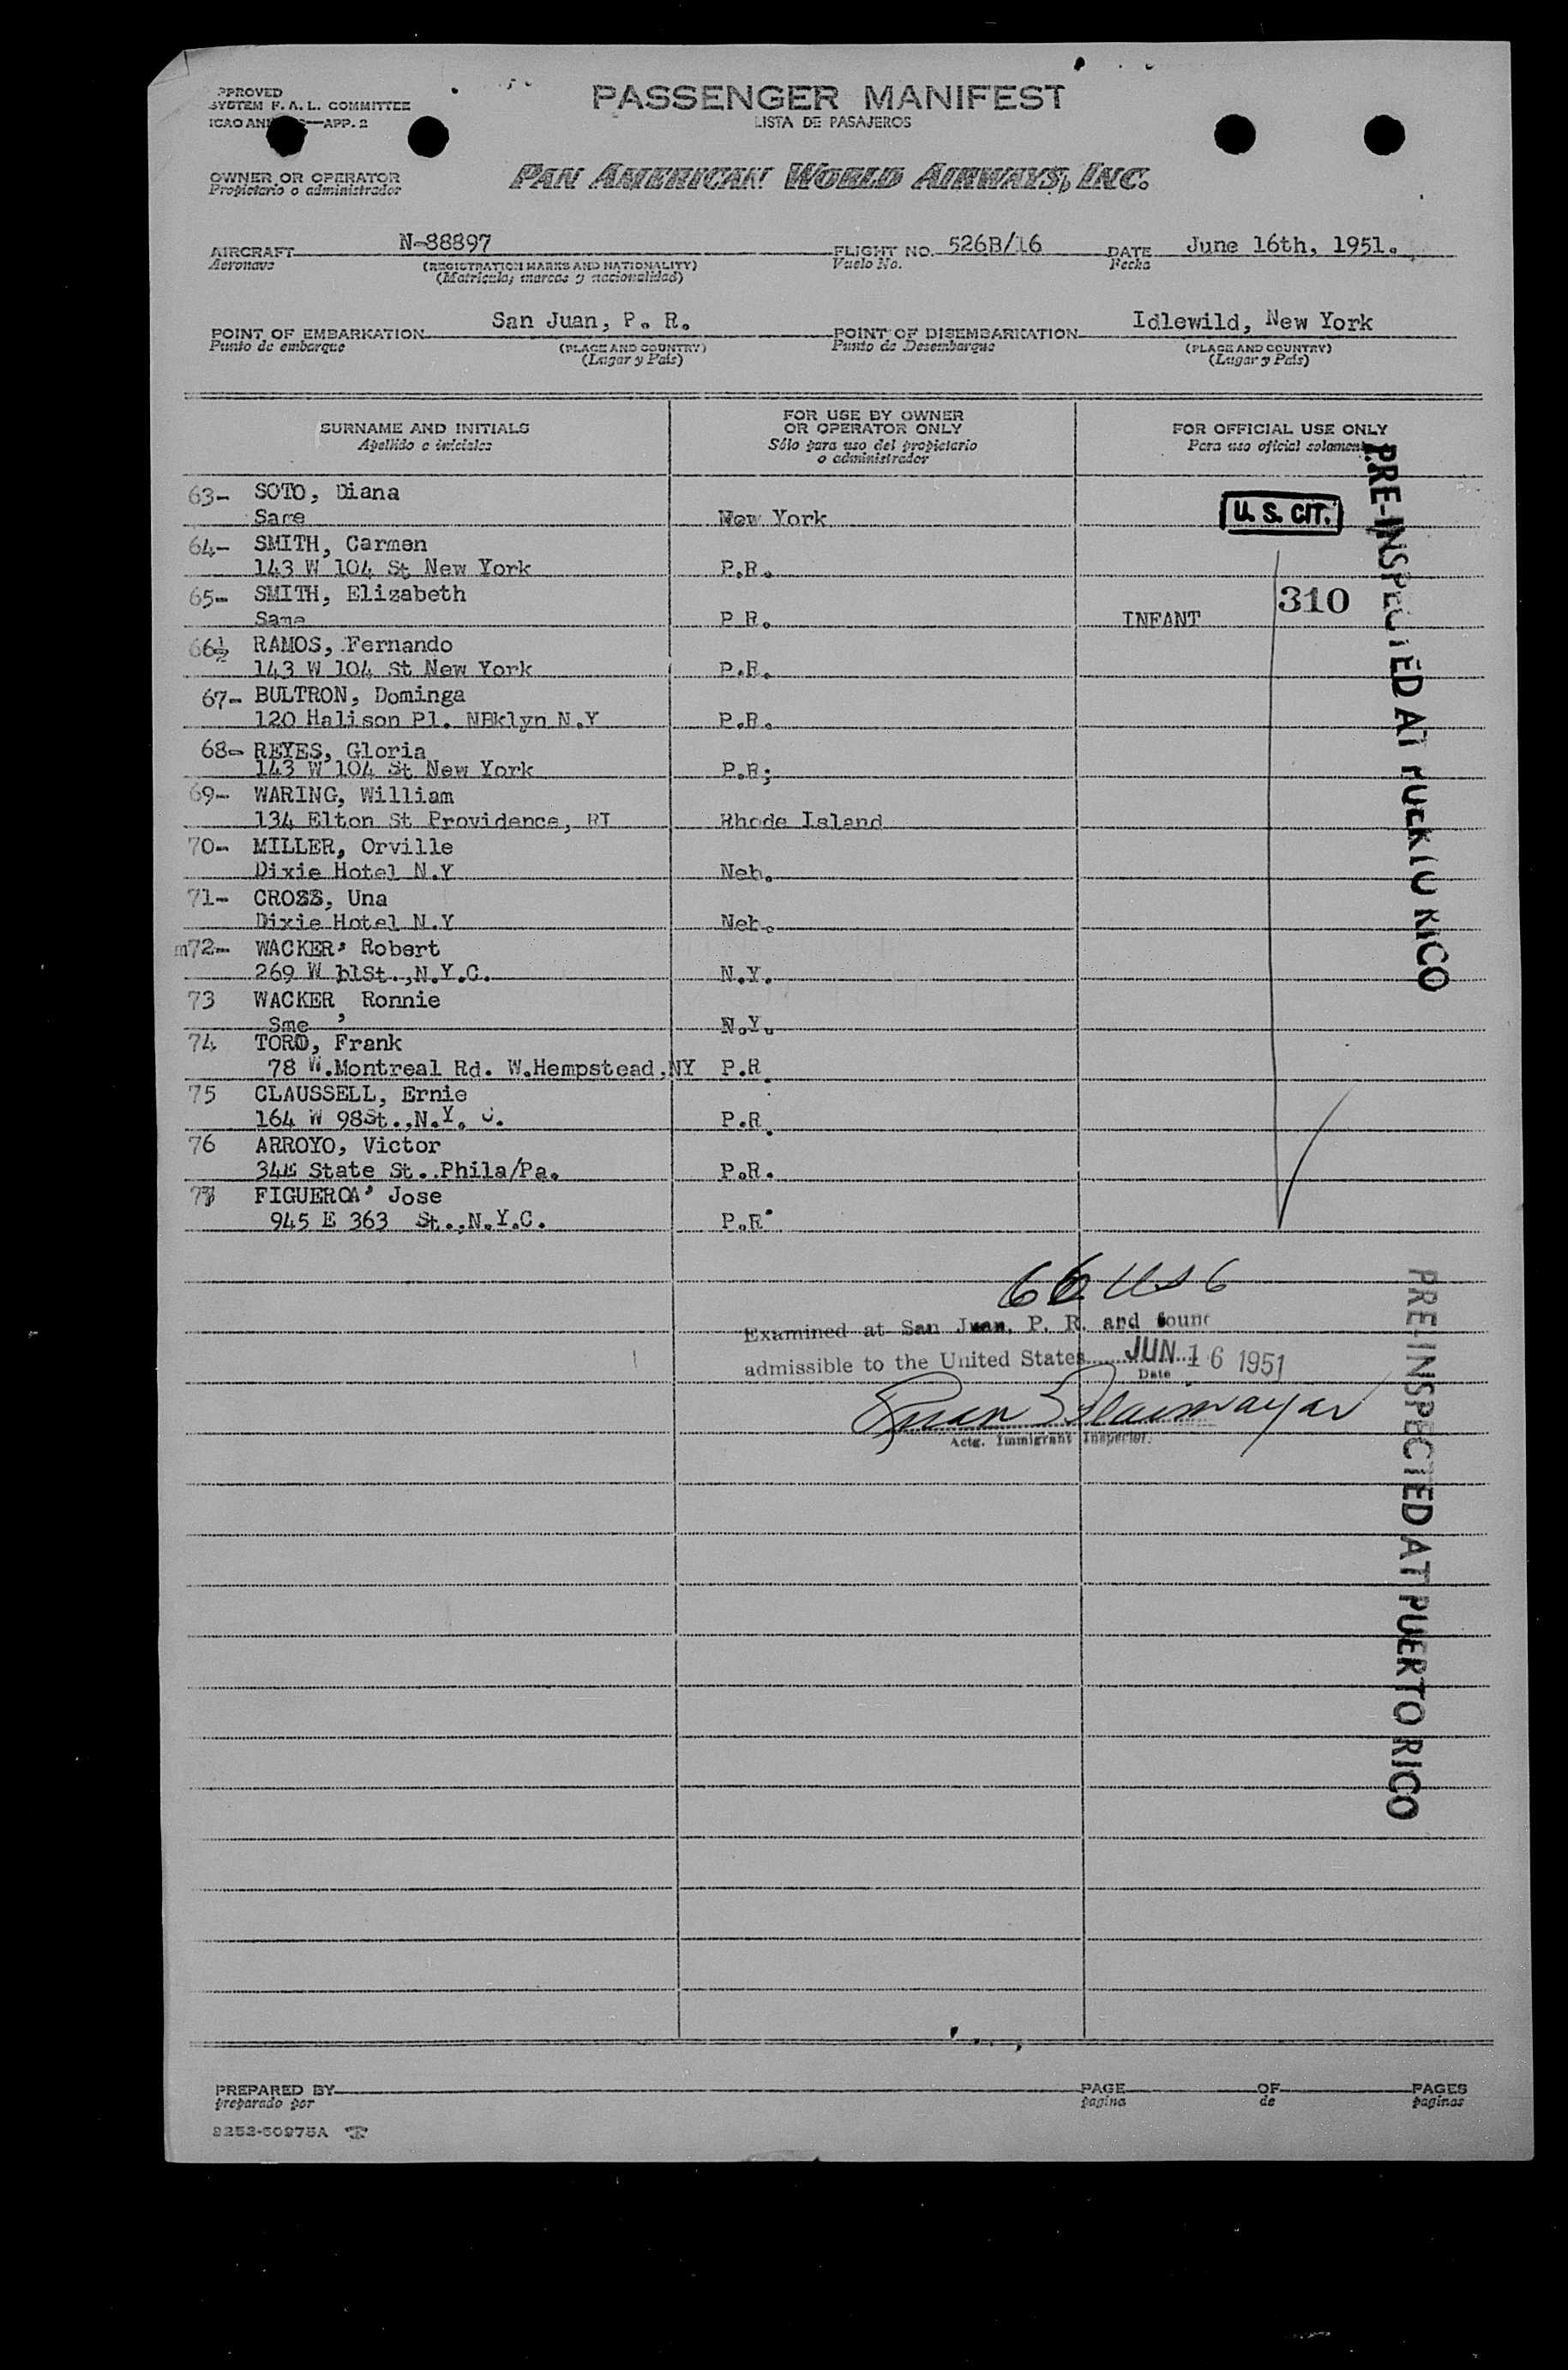 PPROVED
SYSTEM F. A. L. COMMITTEE
PASSENGER MANIFEST
LISTA DE PASAJEROS
ICAO —APP. 2
OWNER OR OPERATOR
Propietario o administrador
PAN AMERICAN WORLD AIRWAYS, INC.
AIRCRAFT N-88897 FLIGHT NO. 526B/16 DATE June 16th, 1951.
Aeronave (REGISTRATION MARKS AND NATIONALITY) Vuelo No. Fecha
(Matricula, marcas y nacionalidad)
POINT OF EMBARKATION San Juan, P. R. POINT OF DISEMBARKATION Idlewild, New York
Punto de embarque (PLACE AND COUNTRY) Punto de Desembarque (PLACE AND COUNTRY)
(Lugar y Pais) (Lugar y Pais)
SURNAME AND INITIALS
Apellido e iniciales
FOR USE BY OWNER
OR OPERATOR ONLY
Sólo para uso del propietario
o administrador
FOR OFFICIAL USE ONLY
Para uso oficial solamente
63- SOTO, Diana
Same New York U. S. CIT.
64- SMITH, Carmen
143 W 104 St New York P.R.
65- SMITH, Elizabeth 310
Same P R. INFANT
66 RAMOS, Fernando
143 W 104 St New York P.R.
67- BULTRON, Dominga
120 Halison Pl. NBklyn N.Y P.R.
68- REYES, Gloria
143 W 104 St New York P.R;
69- WARING, William
134 Elton St Providence, RI Rhode Island
70- MILLER, Orville
Dixie Hotel N.Y Neb.
71- CROSS, Una
Dixie Hotel N.Y Neb.
m72- WACKER, Robert
269 W St.,N.Y.C. N.Y.
73 WACKER , Ronnie
Sme N.Y.
74 TORO, Frank
78 W.Montreal Rd. W.Hempstead.NY P.R.
75 CLAUSSELL, Ernie
164 W 98St.,N.Y. C. P.R.
76 ARROYO, Victor
State St..Phila/Pa. P.R.
77 FIGUEROA, Jose
945 E 363 St.,N.Y.C. P.R.
66
Examined at San Juan, P. R. and found
admissible to the United States JUN 16 1951
Date
Juan
Actg. Immigrant Inspector.
PRE-INSPECTED AT PUERTO RICO
PRE-INSPECTED AT PUERTO RICO
PREPARED BY PAGE OF PAGES
preparado por pagina de paginas